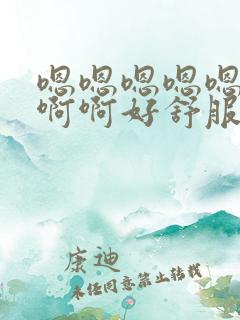 嗯嗯嗯嗯嗯
啊啊好舒服
康迪
未经同意禁止转载